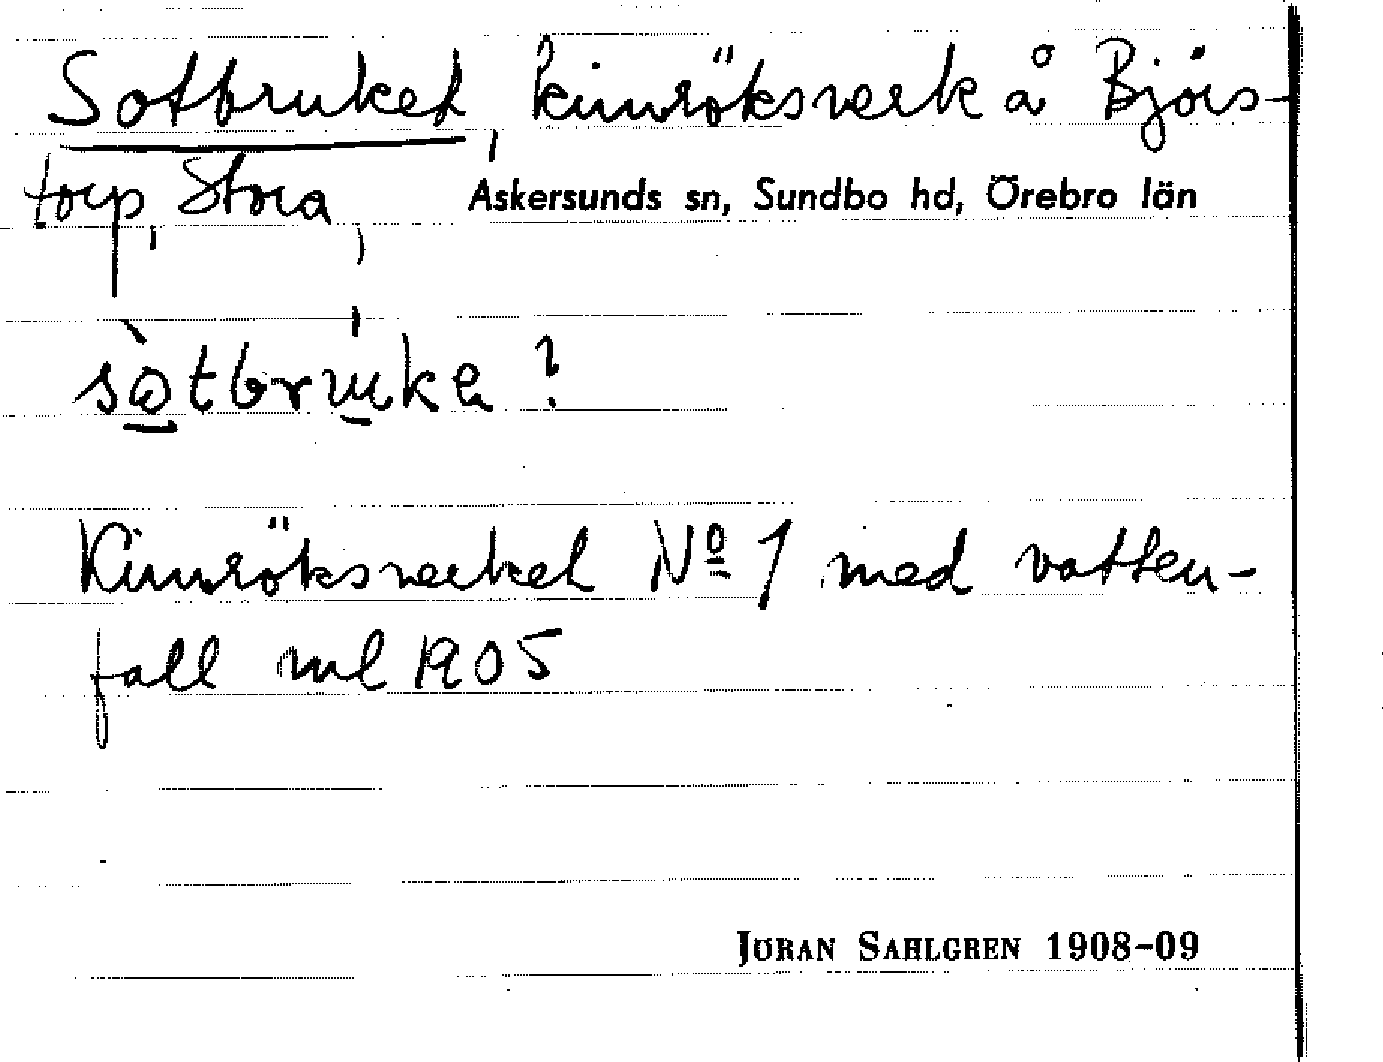 Sotbruket, kimröksverk å Björs-
torp, Stora,
Askersunds sn, Sundbo hd, Örebro län
sòtbrúka?
Kimröksverket Nº 1 med vatten-
fall ml 1905
JÖRAN SAHLGREN 1908-09